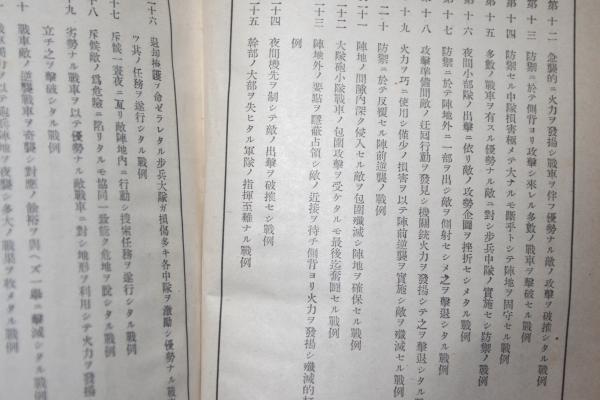 第十二 急襲的ニ火力ヲ發揚シ戰車ヲ伴フ優勢ナル敵ノ攻擊ヲ破摧シタル戰例
第十三 防禦ニ於テ側背ヨリ攻擊シ來レル多數ノ戰車ヲ擊破セル戰例
第十四 防禦セル中隊損害極メテ大ナルモ斷乎トシテ陣地ヲ固守セル戰例
第十五 多數ノ戰車ヲ有スル優勢ナル敵ニ對シ步兵中隊ノ實施セシ防禦ノ戰例
第十六 夜間小部隊ノ出擊ニ依リ敵ノ攻勢企圖ヲ挫折セシメタル戰例
第十七 防禦ニ於テ陣地外ニ一部ヲ出シ敵ヲ側射セシメ之ヲ擊退シタル戰例
十八 攻擊準備間敵ノ迂回行動ヲ發見シ機關銃火力ヲ發揚シテ之ヲ擊退シタル
十九 火力ヲ巧ニ使用シ僅少ノ損害ヲ以テ陣前逆襲ヲ實施シ敵ヲ殲滅セル戰例
二十 防禦ニ於テ反覆セル陣前逆襲ノ戰例
二十一 陣地ノ間隙內深ク侵入セル敵ヲ包圍殲滅シ陣地ヲ確保セル戰例
二十二 大隊砲小隊戰車ノ包圍攻擊ヲ受ケタルモ最後迄奮鬪セル戰例
二十三 陣地外ノ要點ヲ隱蔽占領シ敵ノ近接ヲ待チ側背ヨリ火力ヲ發揚シ殲滅的打
例
二十四 夜間機先ヲ制シテ敵ノ出擊ヲ破摧セシ戰例
二十五 幹部ノ大部ヲ失ヒタル軍隊ノ指揮至難ナル戰例
二十六 退却掩護ヲ命ゼラレタル步兵大隊ガ損傷多キ各中隊ヲ激勵シ優勢ナル戰車
ツ其ノ任務ヲ遂行シタル戰例
十七 斥候一晝夜ニ亙リ敵陣地內ニ行動シ搜索任務ヲ遂行シタル戰例
十八 斥候敵ノ爲危險ニ陷リタルモ協同一致能ク危地ヲ脫シタル戰例
十九 劣勢ナル戰車ヲ以テ優勢ナル敵戰車ニ對シ地形ヲ利用シテ火力ヲ發揚
立チ之ヲ擊破シタル戰例
十 戰車敵ノ逆襲戰車ヲ奇襲シ對應ノ餘裕ヲ與ヘズ一擧ニ擊滅シタル戰例
戰車獨力ヲ以テ砲兵陣地ヲ夜襲シ多大ノ戰果ヲ收メタル戰例